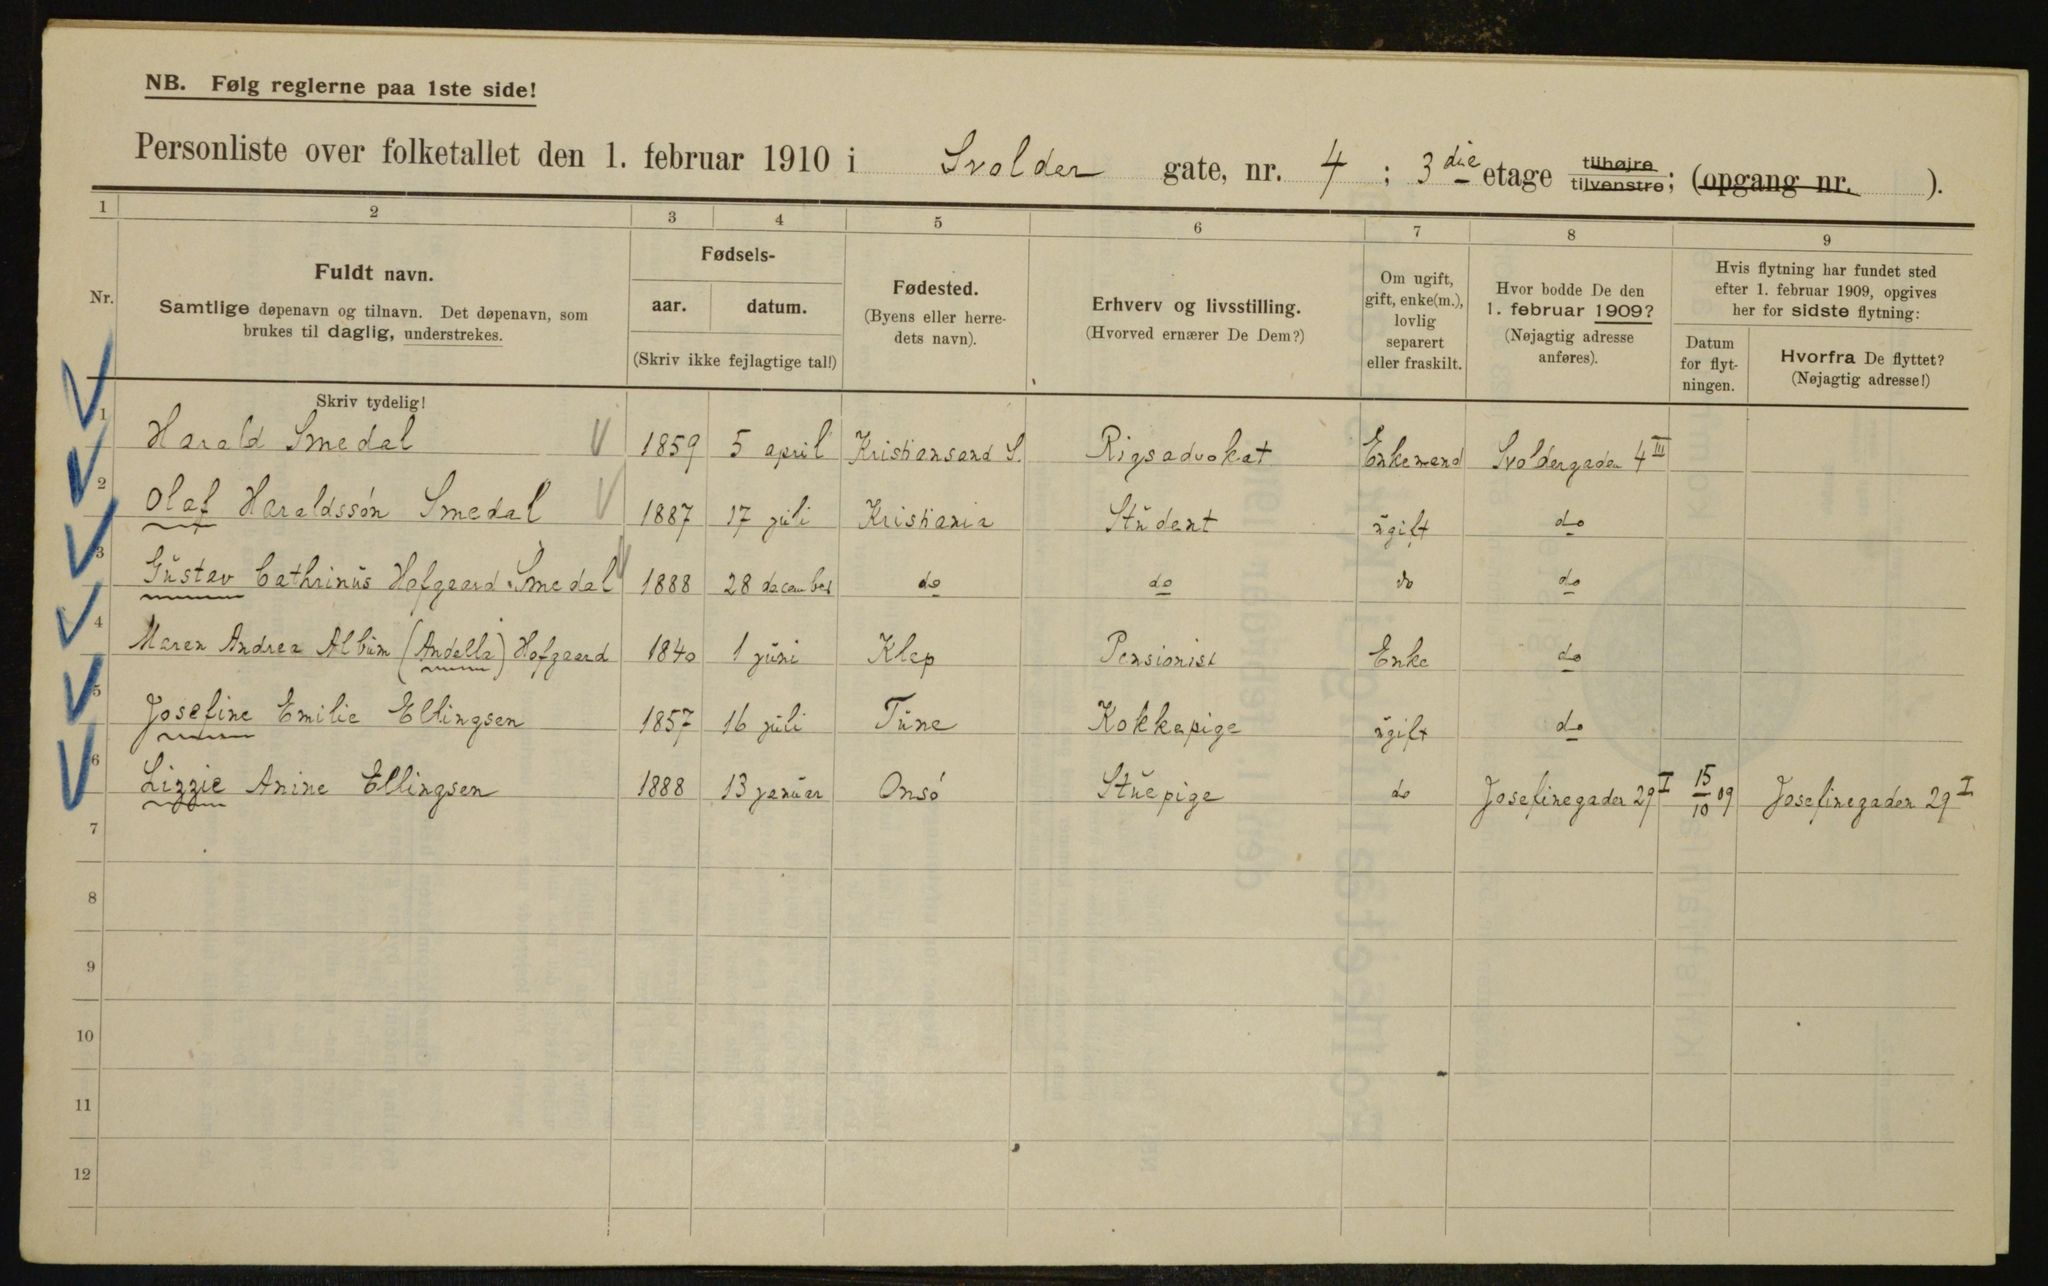 NB. Følg reglerne paa 1ste side!
Personliste over folketallet den 1. februar 1910 i Svolder gate, nr. 4 ; 3 die etage tilhøjre tilvenstre; (opgang nr. ).
1 2 3 4 5 6 7 8 9
Nr.
Fuldt navn.
Samtlige døpenavn og tilnavn. Det døpenavn, som
brukes til daglig, understrekes.
Fødsels-
aar. datum.
(Skriv ikke fejlagtige tal!)
Fødested.
(Byens eller herre-
dets navn).
Erhverv og livsstilling.
(Hvorved ernærer De Dem?)
Om ugift,
gift, enke(m.),
lovlig
separert
eller fraskilt.
Hvor bodde De den
1. februar 1909?
(Nøjagtig adresse
anføres).
Hvis flytning har fundet sted
efter 1. februar 1909, opgives
her for sidste flytning:
Datum
for flyt-
ningen.
Hvorfra De flyttet?
(Nøjagtig adresse!)
Skriv tydelig!
1 Harald Smedal 1859 5 april Kristiansand S. Rigsadvokat Enkemand Svoldergaden 4 III
2 Olaf Haraldssøn Smedal 1887 17 juli Kristiania Student ugift do
3 Gustav Cathrinus Hofgaard Smedal 1888 28 december do do do do
4 Maren Andrea Album (Andella) Hofgaard 1840 1 juni Klep Pensionist Enke do
5 Josefine Emilie Ellingsen 1857 16 juli Tune Kokkepige ugift do
6 Lizzie Anine Ellingsen 1888 13 januar Onsø Stuepige do Josefinegaden 29 I 15/10 09 Josefinegaden 29 I
7
8
9
10
11
12